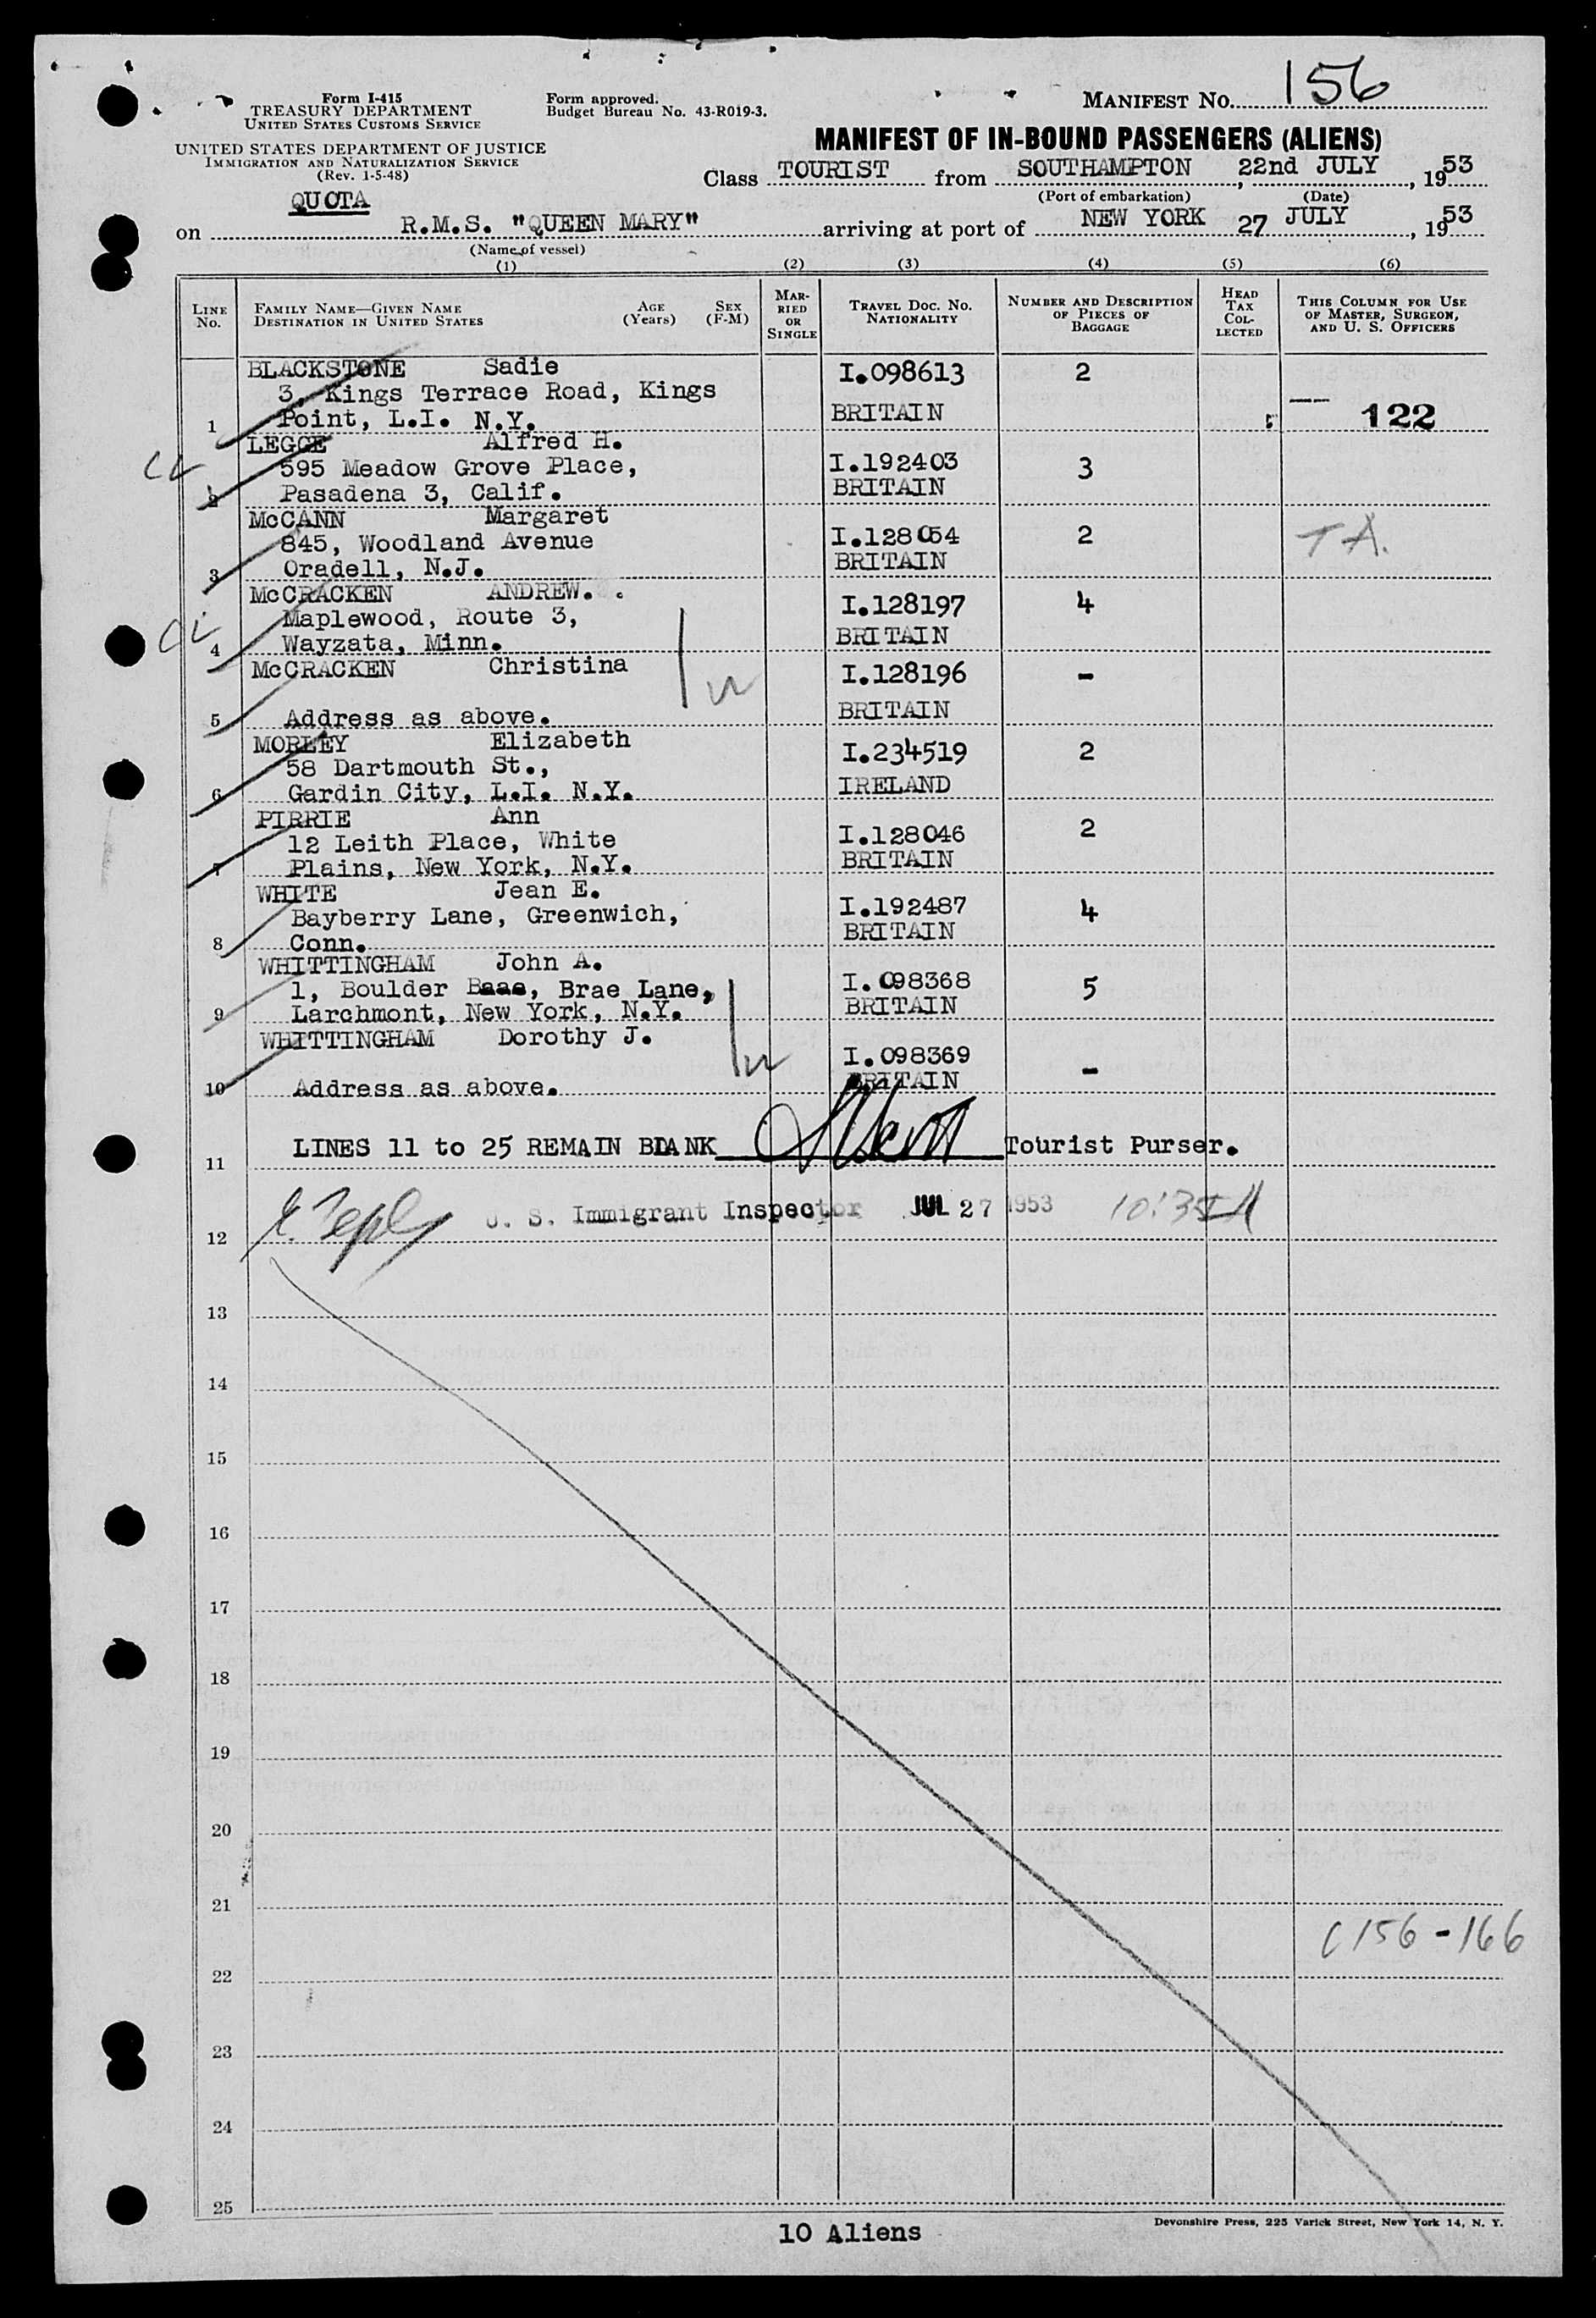 Form I-415
TREASURY DEPARTMENT
UNITED STATES CUSTOMS SERVICE
UNITED STATES DEPARTMENT OF JUSTICE
IMMIGRATION AND NATURALIZATION SERVICE
(Rev. 1-5-48)
QUOTA
Form approved.
Budget Bureau No. 43-R019-3.
MANIFEST NO. 156
MANIFEST OF IN-BOUND PASSENGERS (ALIENS)
Class TOURIST from SOUTHAMPTON, 22nd JULY, 1953
(Port of embarkation) (Date)
on R.M.S. "QUEEN MARY" arriving at port of NEW YORK 27 JULY, 1953
(Name of vessel)
(1) (2) (3) (4) (5) (6)
LINE No. FAMILY NAME—GIVEN NAME DESTINATION IN UNITED STATES AGE (Years) SEX (F-M) MARRIED OR SINGLE TRAVEL DOC. NO. NATIONALITY NUMBER AND DESCRIPTION OF PIECES OF BAGGAGE HEAD TAX COLLECTED THIS COLUMN FOR USE OF MASTER, SURGEON, AND U. S. OFFICERS
BLACKSTONE Sadie I.098613 2
3, Kings Terrace Road, Kings
1 Point, L.I. N.Y. BRITAIN 122
LEGGE Alfred H.
595 Meadow Grove Place, I.192403 3
2 Pasadena 3, Calif. BRITAIN
McCANN Margaret
845, Woodland Avenue I.128054 2 TA.
3 Oradell, N.J. BRITAIN
McCRACKEN ANDREW. I.128197 4
Maplewood, Route 3,
4 Wayzata, Minn. BRITAIN
McCRACKEN Christina I.128196 -
5 Address as above. BRITAIN
MORLEY Elizabeth I.234519 2
58 Dartmouth St.,
6 Gardin City, L.I. N.Y. IRELAND
PIRRIE Ann
12 Leith Place, White I.128046 2
7 Plains, New York, N.Y. BRITAIN
WHITE Jean E.
Bayberry Lane, Greenwich, I.192487 4
8 Conn. BRITAIN
WHITTINGHAM John A.
1, Boulder Baae, Brae Lane, I.098368 5
9 Larchmont, New York, N.Y. BRITAIN
WHITTINGHAM Dorothy J.
I.098369 -
10 Address as above. BRITAIN
LINES 11 to 25 REMAIN BLANK Tourist Purser.
11
12 U. S. Immigrant Inspector JUL 27 1953
13
14
15
16
17
18
19
20
21
156-166
22
23
24
25
10 Aliens
Devonshire Press, 225 Varick Street, New York 14, N. Y.